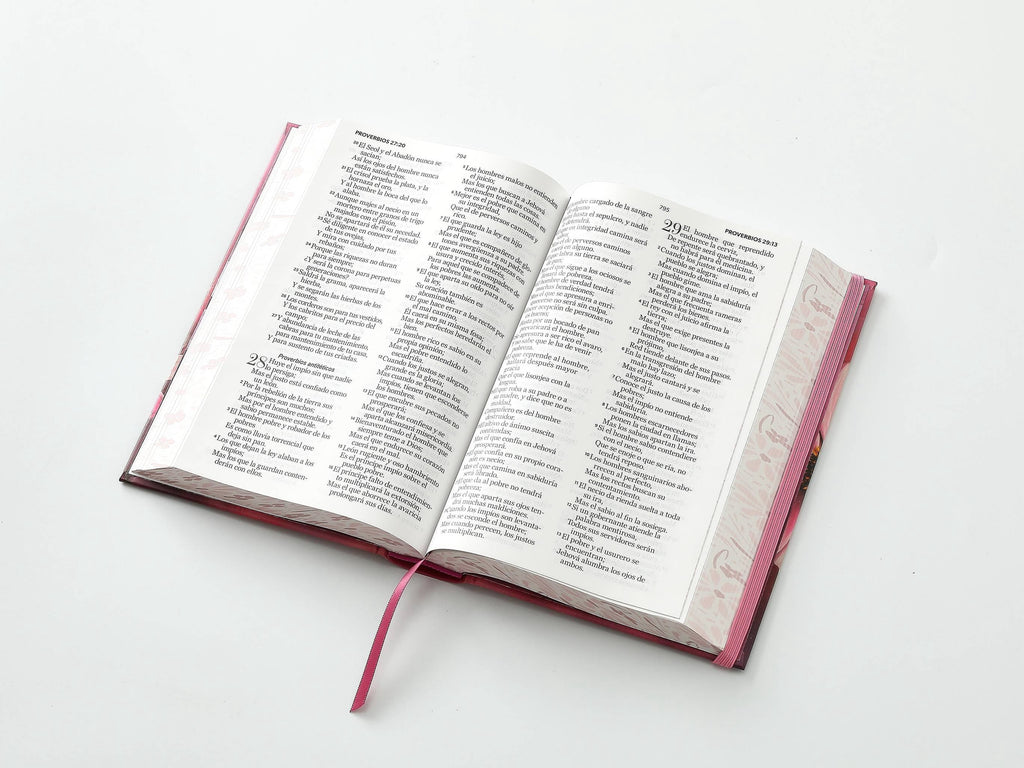 PROVERBIOS 27:20
20 El Seol y el Abadón nunca se
sacian;
Así los ojos del hombre nunca
están satisfechos.
21 El crisol prueba la plata, y la
hornaza el oro,
Y al hombre la boca del que lo
alaba.
22 Aunque majes al necio en un
mortero entre granos de trigo
majados con el pisón,
No se apartará de él su necedad.
23 Sé diligente en conocer el estado
de tus ovejas,
Y mira con cuidado por tus
rebaños;
24 Porque las riquezas no duran
para siempre;
¿Y será la corona para perpetuas
generaciones?
25 Saldrá la grama, aparecerá la
hierba,
Y se segarán las hierbas de los
montes.
26 Los corderos son para tus vestidos,
Y los cabritos para el precio del
campo;
27 Y abundancia de leche de las
cabras para tu mantenimiento,
para mantenimiento de tu casa,
Y para sustento de tus criadas.
Proverbios antitéticos
28 Huye el impío sin que nadie
lo persiga;
Mas el justo está confiado como
un león.
2 Por la rebelión de la tierra sus
príncipes son muchos;
Mas por el hombre entendido y
sabio permanece estable.
3 El hombre pobre y robador de los
pobres
Es como lluvia torrencial que
deja sin pan.
4 Los que dejan la ley alaban a los
impíos;
Mas los que la guardan conten-
derán con ellos.
794
5 Los hombres malos no entienden
el juicio;
Mas los que buscan a Jehová
entienden todas las cosas.
6 Mejor es el pobre que camina en
su integridad,
Que el de perversos caminos y
rico.
7 El que guarda la ley es hijo
prudente;
Mas el que es compañero de glo-
tones avergüenza a su padre.
8 El que aumenta sus riquezas con
usura y crecido interés,
Para aquel que se compadece de
los pobres las aumenta.
9 El que aparta su oído para no oír
la ley,
Su oración también es
abominable.
10 El que hace errar a los rectos por
el mal camino,
Él caerá en su misma fosa;
Mas los perfectos heredarán el
bien.
11 El hombre rico es sabio en su
propia opinión;
Mas el pobre entendido lo
escudriña.
12 Cuando los justos se alegran,
grande es la gloria;
Mas cuando se levantan los
impíos, tienen que esconderse
los hombres.
13 El que encubre sus pecados no
prosperará;
Mas el que los confiesa y se
aparta alcanzará misericordia.
14 Bienaventurado el hombre que
siempre teme a Dios;
Mas el que endurece su corazón
caerá en el mal.
15 León rugiente y oso hambriento
Es el príncipe impío sobre el
pueblo pobre.
16 El príncipe falto de entendimien-
to multiplicará la extorsión;
Mas el que aborrece la avaricia
prolongará sus días.
mbre cargado de la sangre
alguno
hasta el sepulcro, y nadie
detendrá.
integridad camina será
de perversos caminos
labra su tierra se saciará
que sigue a los ociosos se
de pobreza.
de verdad tendrá
muchas bendiciones;
que se apresura a enri-
no será sin culpa.
acepción de personas no
bueno;
por un bocado de pan
prevaricará el hombre.
apresura a ser rico el avaro,
sabe que le ha de venir
pobreza.
que reprende al hombre,
hallará después mayor
gracia
que el que lisonjea con la
lengua.
que roba a su padre o a
su madre, y dice que no es
maldad,
Compañero es del hombre
destruidor.
altivo de ánimo suscita
contiendas;
Mas el que confía en Jehová
prosperará.
que confía en su propio cora-
zón es necio;
Mas el que camina en sabiduría
será librado.
que da al pobre no tendrá
pobreza;
Mas el que aparta sus ojos ten-
drá muchas maldiciones.
Cuando los impíos son levanta-
dos se esconde el hombre;
Mas cuando perecen, los justos
se multiplican.
795
PROVERBIOS 29:13
29 El hombre que reprendido
endurece la cerviz,
De repente será quebrantado, y
no habrá para él medicina.
2 Cuando los justos dominan, el
pueblo se alegra;
Mas cuando domina el impío, el
pueblo gime.
3 El hombre que ama la sabiduría
alegra a su padre;
Mas el que frecuenta rameras
perderá los bienes.
4 El rey con el juicio afirma la
tierra;
Mas el que exige presentes la
destruye.
5 El hombre que lisonjea a su
prójimo,
Red tiende delante de sus pasos.
6 En la transgresión del hombre
malo hay lazo;
Mas el justo cantará y se
alegrará.
7 Conoce el justo la causa de los
pobres;
Mas el impío no entiende
sabiduría.
8 Los hombres escarnecedores
ponen la ciudad en llamas;
Mas los sabios apartan la ira.
9 Si el hombre sabio contendiere
con el necio,
Que se enoje o que se ría, no
tendrá reposo.
10 Los hombres sanguinarios abo-
rrecen al perfecto,
Mas los rectos buscan su
contentamiento.
11 El necio da rienda suelta a toda
su ira,
Mas el sabio al fin la sosiega.
12 Si un gobernante atiende la
palabra mentirosa,
Todos sus servidores serán
impíos.
13 El pobre y el usurero se
encuentran;
Jehová alumbra los ojos de
ambos.